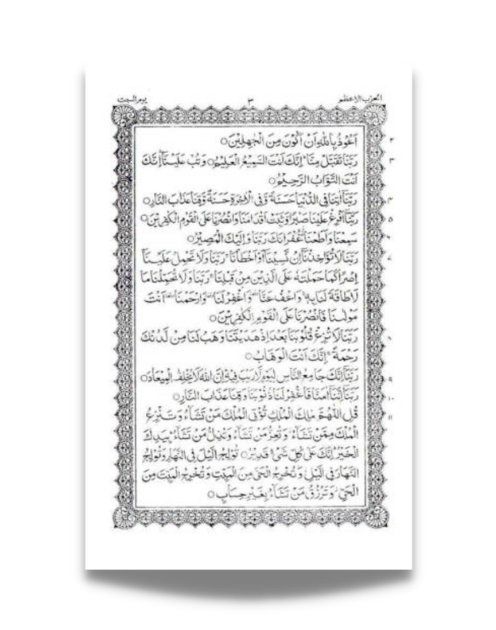 الحزب الاعظم ٣ يوم السبت
اَعُوْذُ بِاللّٰهِ اَنْ اَكُوْنَ مِنَ الْجٰهِلِيْنَ ○
رَبَّنَا تَقَبَّلْ مِنَّا ؕ اِنَّكَ اَنْتَ السَّمِيْعُ الْعَلِيْمُ ○ وَتُبْ عَلَيْنَا ۚ اِنَّكَ
اَنْتَ التَّوَّابُ الرَّحِيْمُ ○
رَبَّنَا اٰتِنَا فِي الدُّنْيَا حَسَنَةً وَّفِي الْاٰخِرَةِ حَسَنَةً وَّقِنَا عَذَابَ النَّارِ ○
رَبَّنَا اَفْرِغْ عَلَيْنَا صَبْرًا وَّثَبِّتْ اَقْدَامَنَا وَانْصُرْنَا عَلَى الْقَوْمِ الْكٰفِرِيْنَ ○
سَمِعْنَا وَاَطَعْنَا غُفْرَانَكَ رَبَّنَا وَاِلَيْكَ الْمَصِيْرُ ○
رَبَّنَا لَا تُؤَاخِذْنَا اِنْ نَّسِيْنَا اَوْ اَخْطَاْنَا ۚ رَبَّنَا وَلَا تَحْمِلْ عَلَيْنَا
اِصْرًا كَمَا حَمَلْتَهٗ عَلَى الَّذِيْنَ مِنْ قَبْلِنَا ۚ رَبَّنَا وَلَا تُحَمِّلْنَا مَا
لَا طَاقَةَ لَنَا بِهٖ ۚ وَاعْفُ عَنَّا وَاغْفِرْ لَنَا وَارْحَمْنَا اَنْتَ
مَوْلٰىنَا فَانْصُرْنَا عَلَى الْقَوْمِ الْكٰفِرِيْنَ ○
رَبَّنَا لَا تُزِغْ قُلُوْبَنَا بَعْدَ اِذْ هَدَيْتَنَا وَهَبْ لَنَا مِنْ لَّدُنْكَ
رَحْمَةً ۚ اِنَّكَ اَنْتَ الْوَهَّابُ ○
رَبَّنَا اِنَّكَ جَامِعُ النَّاسِ لِيَوْمٍ لَّا رَيْبَ فِيْهِ ؕ اِنَّ اللّٰهَ لَا يُخْلِفُ الْمِيْعَادَ ○
رَبَّنَا اِنَّنَا اٰمَنَّا فَاغْفِرْ لَنَا ذُنُوْبَنَا وَقِنَا عَذَابَ النَّارِ ○
قُلِ اللّٰهُمَّ مٰلِكَ الْمُلْكِ تُؤْتِي الْمُلْكَ مَنْ تَشَآءُ وَتَنْزِعُ
الْمُلْكَ مِمَّنْ تَشَآءُ ۫ وَتُعِزُّ مَنْ تَشَآءُ وَتُذِلُّ مَنْ تَشَآءُ ؕ بِيَدِكَ
الْخَيْرُ ؕ اِنَّكَ عَلٰى كُلِّ شَيْءٍ قَدِيْرٌ ○ تُوْلِجُ الَّيْلَ فِي النَّهَارِ وَتُوْلِجُ
النَّهَارَ فِي الَّيْلِ وَتُخْرِجُ الْحَيَّ مِنَ الْمَيِّتِ وَتُخْرِجُ الْمَيِّتَ مِنَ
الْحَيِّ وَتَرْزُقُ مَنْ تَشَآءُ بِغَيْرِ حِسَابٍ ○